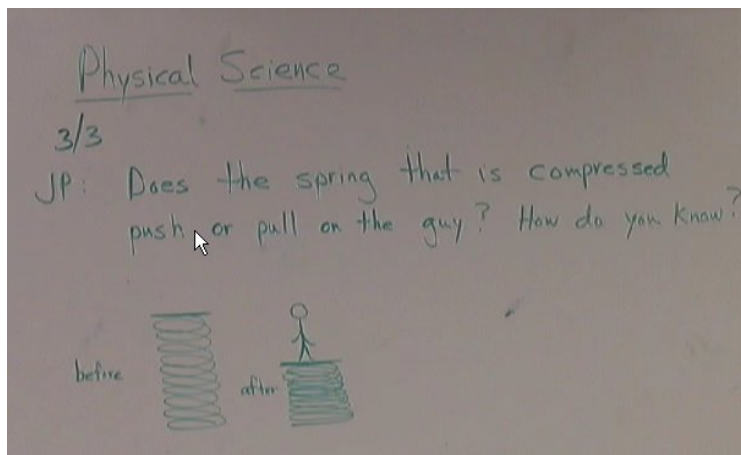 Physical Science
3/3
JP: Does the spring that is compressed
push or pull on the guy? How do you know?
before
after